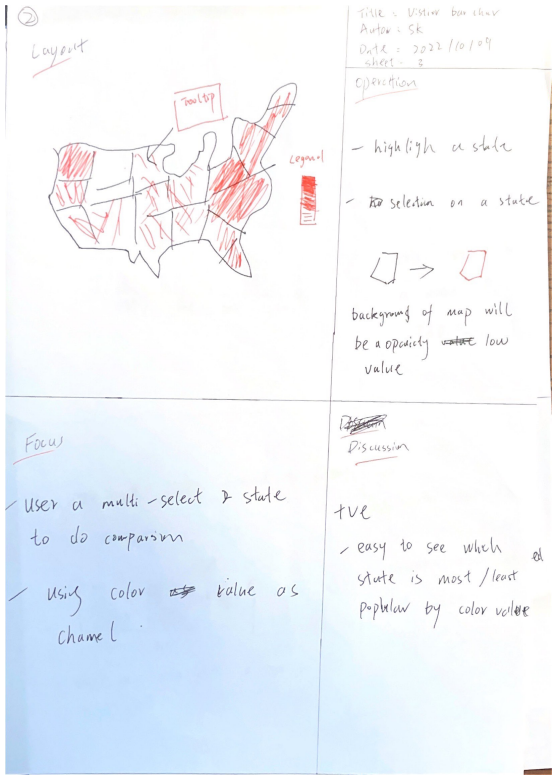 2
Layout
Tooltip
Legend
Title : Vistior bar char
Autor : Sk
Date : 2022/10/09
sheet : 3
Operattion
- highligh a state
- selection on a state
background of map will
be a opaicty low
value
Focus
- User a multi-select & state
to do comparsion
- Using color value as
channel
Discussion
+ve
- easy to see which
state is most/least
popular by color value
ed